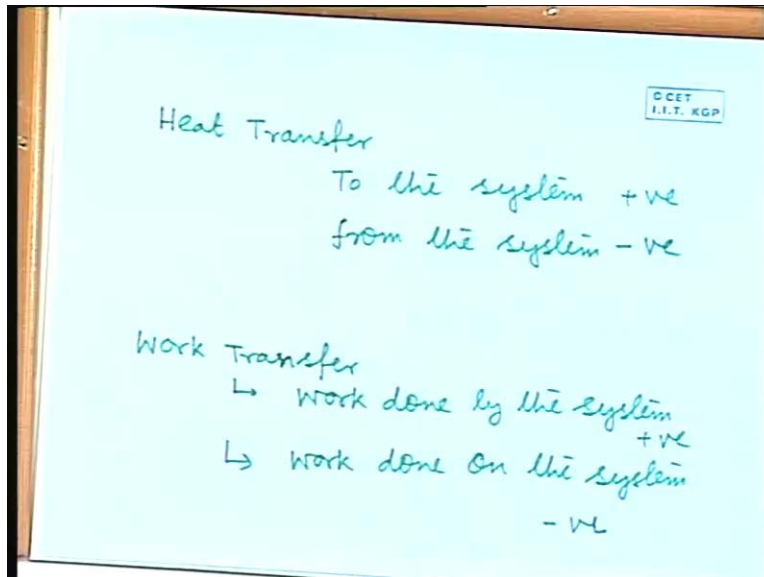 © CET
I.I.T. KGP
Heat Transfer
To the system +ve
from the system -ve
Work Transfer
↳ work done by the system
+ve
↳ work done on the system
-ve